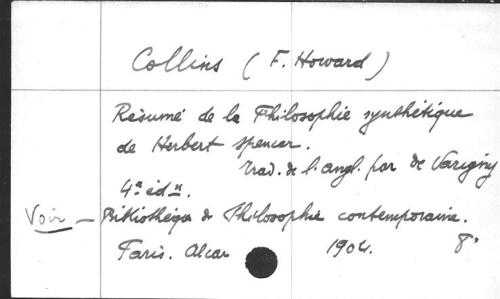 Collins (F. Howard)
Résumé de la Philosophie synthétique
de Herbert Spencer.
Trad. de l'angl. par de Varigny
4e édn.
Voir — Bibliothèque de Philosophie contemporaine.
Paris. Alcan 1904. 8°